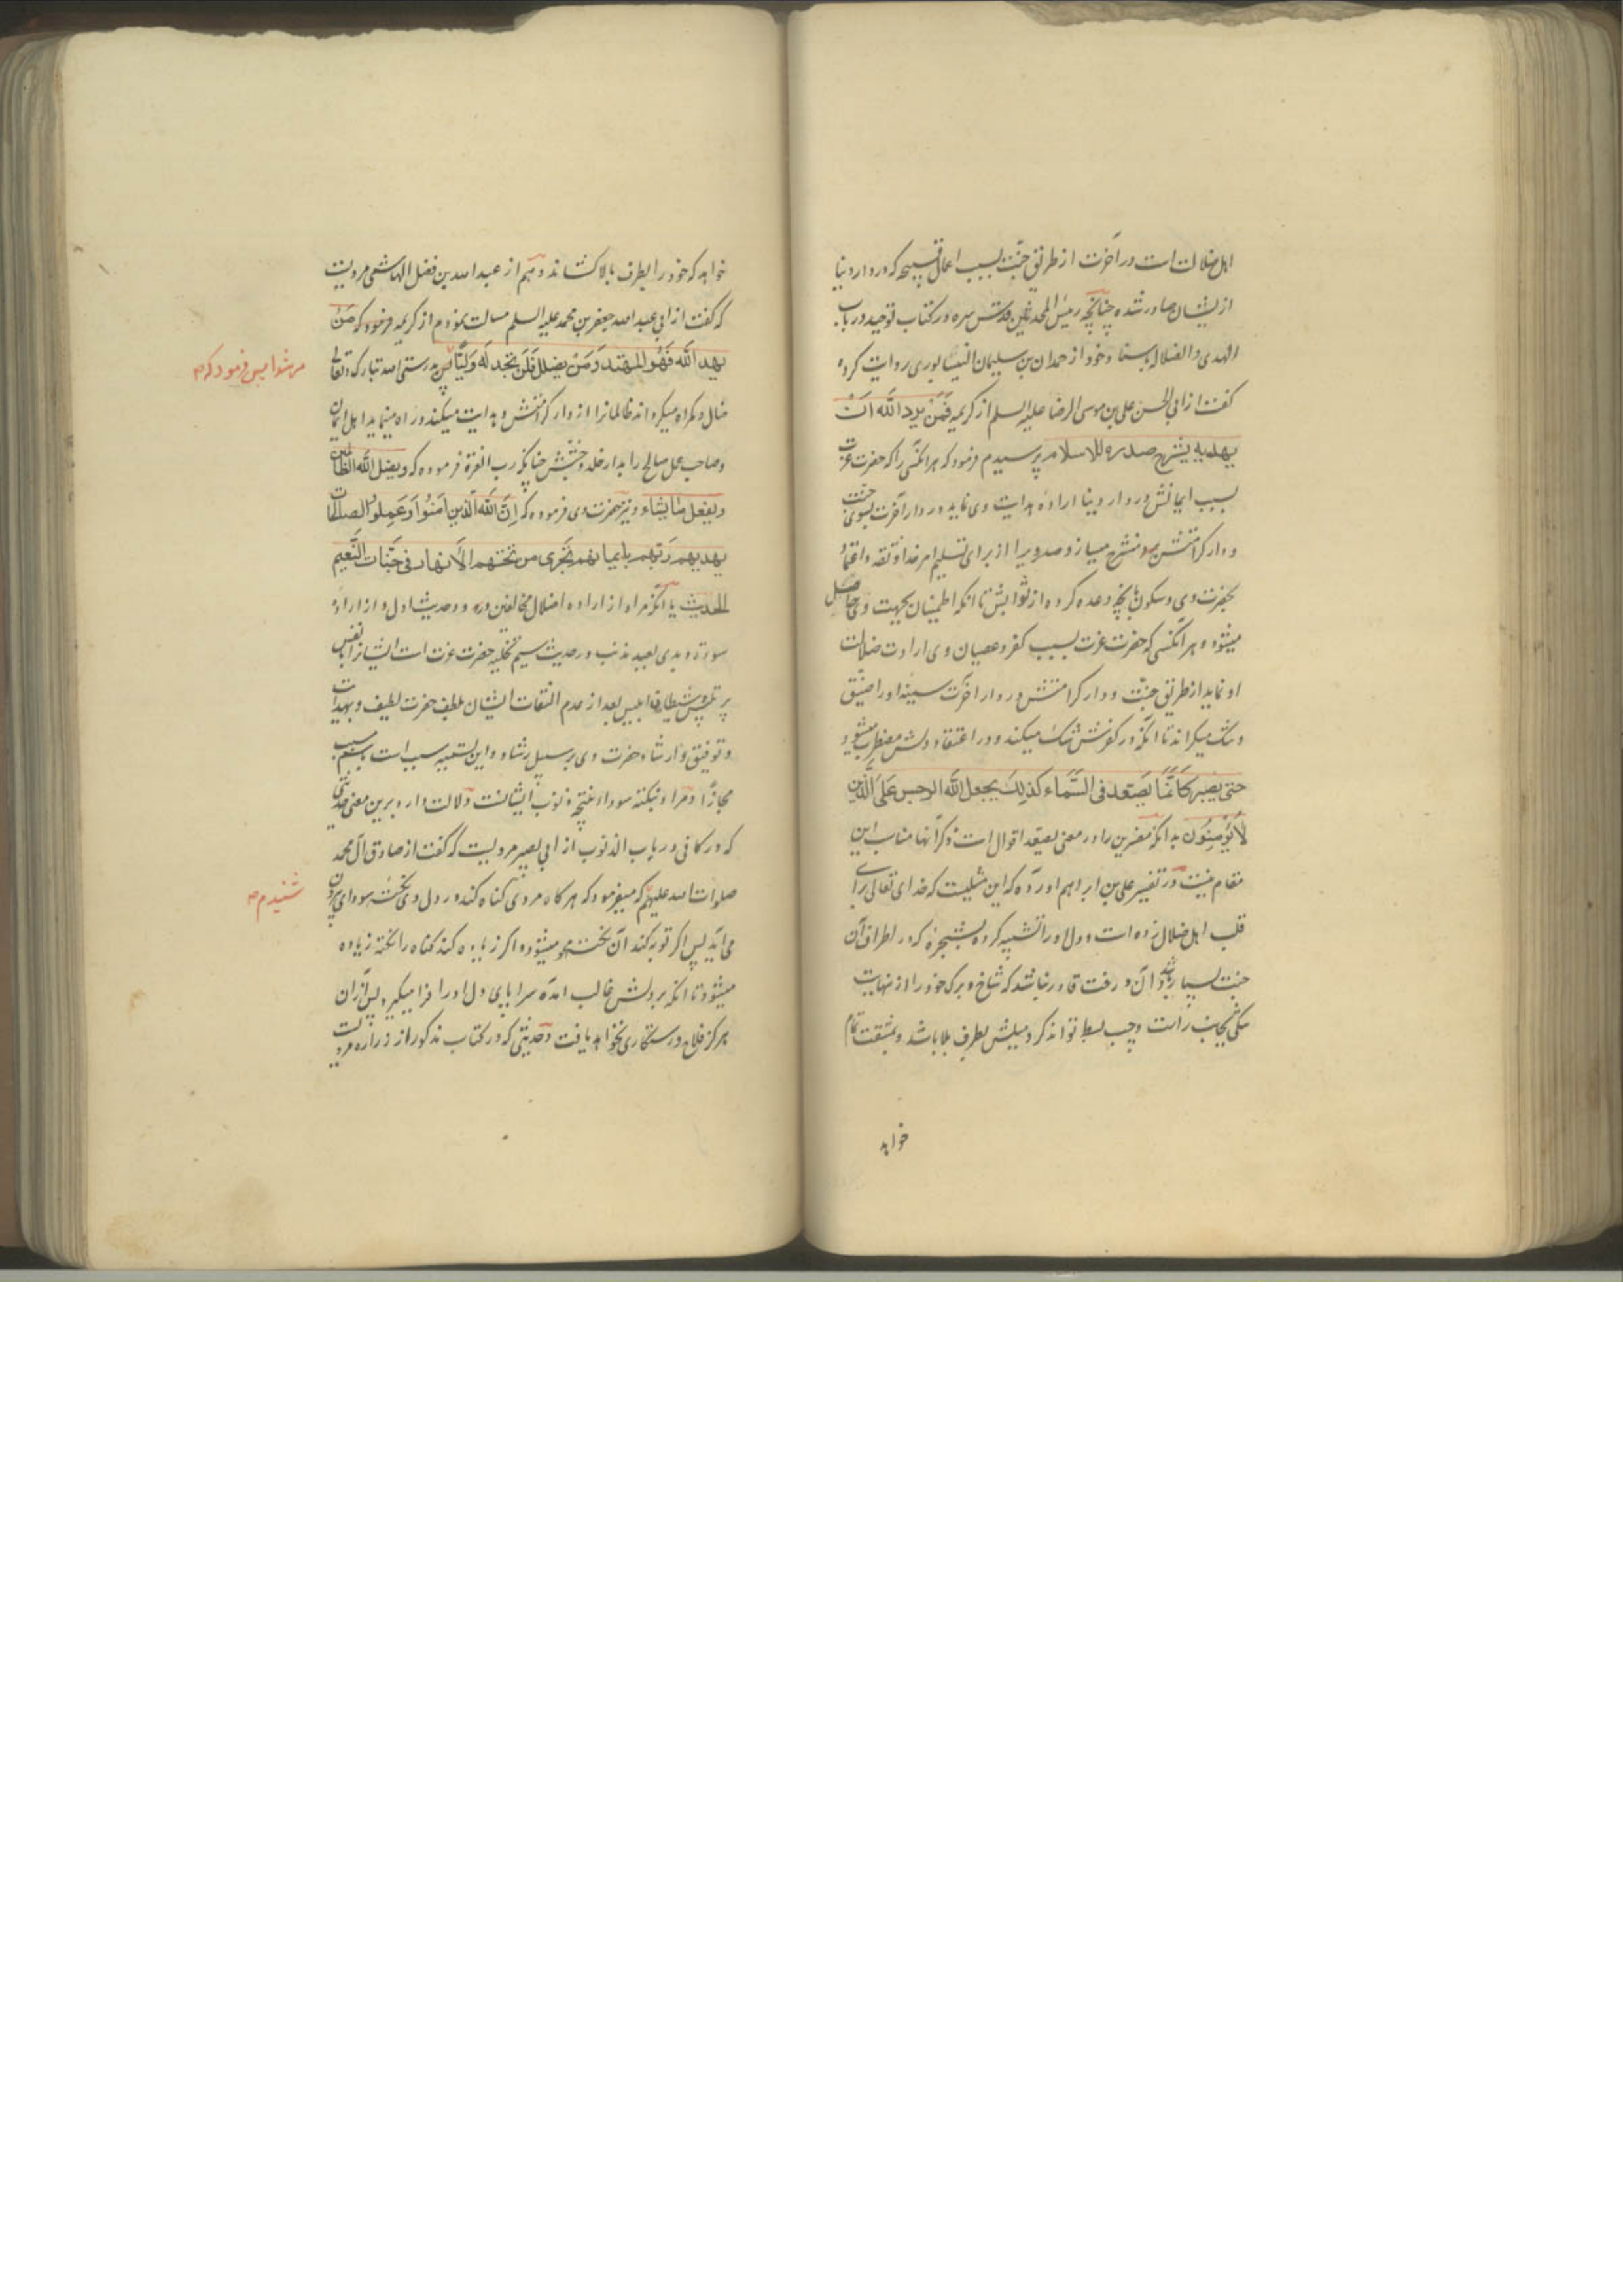 اهل ضلالت است در آخرت از طریق جنّت بسبب اعمال قبیحه که در دار دنیا
از ایشان صادر شده چنانچه رئیس المحدثین قدس سره در کتاب توحید در باب
الهدی و الضلاله باسناد خود از حمدان بن سلیمان النیسابوری روایت کرده
گفت از ابی الحسن علی بن موسی الرضا علیه السلم از کریمه فَمَنْ یرد اللّه اَنْ
یهدیه یشرح صدره للاسلام پرسیدم فرمود که هر آنکسی را که حضرت عزت
بسبب ایمانش در دار دنیا اراده هدایت وی نماید در دار آخرت بسوی جنّت
و دار کرامتش منشرح میسازد صدر ویرا از برای تسلیم امر خدا و ثقه و اعتماد
بحضرت وی و سکون بآنچه وعده کرده از ثوابش تا آنکه اطمینان بجهت وی حاصل
میشود و هر آنکسی که حضرت عزت بسبب کفر و عصیان وی ارادت ضلالت
او نماید از طریق جنّت و دار کرامتش در دار آخرت سینه او را ضیّق
و تنک میکرداند تا آنکه در کفرش شک میکند و در اعتقاد دلش مضطرب میشود
حتی یصیر کَاَنَّمَا یَصَّعد فی السَّمَاء کذلِكَ یجعل اللّه الرجس عَلَی الَّذین
لَا یُؤمِنُون بدانکه مفسرین را در معنی یصّعد اقوال است ذکر آنها مناسب این
مقام نیست و در تفسیر علی بن ابراهیم آورده که این مثلیست که خدای تعالی برای
قلب اهل ضلال زده است و دل او را تشبیه کرده بشجرۀ که در اطراف آن
جنب بسیار باشد و آن درخت قادر نباشد که شاخ و برک خود را از نهایت
تنکی بجانب راست و چپ بسط تواند کرد میلش بطرف بالا باشد و بمشقت تمام
خواهد
خواهد که خود را بطرف بالا کشاند و هم از عبد الله بن فضل الهاشمی مرویست
که گفت از ابی عبد الله جعفر بن محمد علیه السلم مسالت نمودم از کریمه مَنْ
یهد اللّه فَهُوَ المهتد وَ مَنْ یضلل فَلَنْ تجد له وَلیًّا مرشدا پس فرمود که بدرستی الله تبارک و تعالی
ضال و کمراه میکرداند ظالمانرا از دار کرامتش و هدایت میکند و راه مینماید اهل ایمان
و صاحب عمل صالح را بدار خلد و جنّتش چنانکه رب العزة فرموده که و یضل اللّه الظالمین
و یفعل ما یشاء و نیز حضرت وی فرموده که اِنَّ اللّه الّذین اٰمَنُوا وَ عَمِلوا الصالحات
یهدیهم رَبّهم بایمانهم تَجری من تحتهم الاَنهار فی جنّات النّعیم
الحدیث یا آنکه مراد از اراده اضلال مخالفین در دو حدیث اول و از اراده
سوء و بدی بعبد مذنب در حدیث سیم تخلیه حضرت عزت است ایشانرا با نفس
پر تلبیس و شیطان ابلیس بعد از عدم التفات ایشان بلطف حضرت لطیف و بهدایت
و توفیق و ارشاد حضرت وی بر سبیل رشاد و این تسمیه سبب است باسم مسبب
مجازًا و مراد بنکته سوداء نتیجه ذنوب ایشانست و دلالت دارد برین معنی حدیثی
که در کافی در باب الذنوب از ابی بصیر مرویست که گفت از صادق آل محمد
صلوات الله علیهم شنیدم که میفرمود که هر کاه مردی کناه کند در دل وی نکته سودای بیرون
می آید پس اکر توبه کند آن نکته محو میشود و اکر زیاده کند کناه را نکته زیاده
میشود تا آنکه بر دلش غالب آمده سراپای دل او را فرا میکیرد پس از آن
هرکز فلاح و رستکاری نخواهد یافت و حدیثی که در کتاب مذکور از زراره مرویست